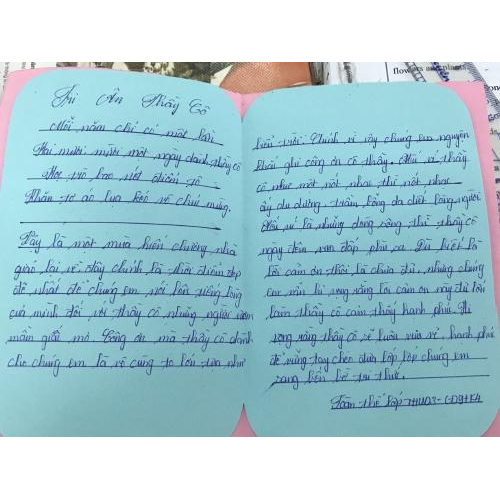 Tri Ân Thầy Cô
Mỗi năm chỉ có một lần
Hai mươi mười một ngày dành thầy cô
Học trò bao nét điểm tô
Nhân tơ áo lụa kéo về chúc mừng.
Đây là một mùa hiến chương nhà
giáo lại về đây chính là thời điểm đẹp
đẽ nhất để chúng em nói lên tiếng lòng
của mình đối với thầy cô những người ươm
mầm giấc mơ. Công ơn mà thầy cô dành
cho chúng em là vô cùng to lớn tựa như
biển trời. Chính vì vậy chúng em nguyện
khắc ghi công ơn cô thầy. Nếu ví thầy
cô như một nốt nhạc thì nốt nhạc
ấy du dương, trầm bổng da diết lòng người
Nếu ví là những dòng sông thì thầy cô
ngày đêm vun đắp phù sa. Dù biết là
lời cảm ơn thôi là chưa đủ, nhưng chúng
em vẫn hi vọng rằng lời cảm ơn này đủ lớn
làm thầy cô cảm thấy hạnh phúc. Hi
vọng rằng thầy cô sẽ luôn vui vẻ, hạnh phúc
để vững tay chèo đưa lớp lớp chúng em
sang bến bờ tri thức.
Toàn thể lớp